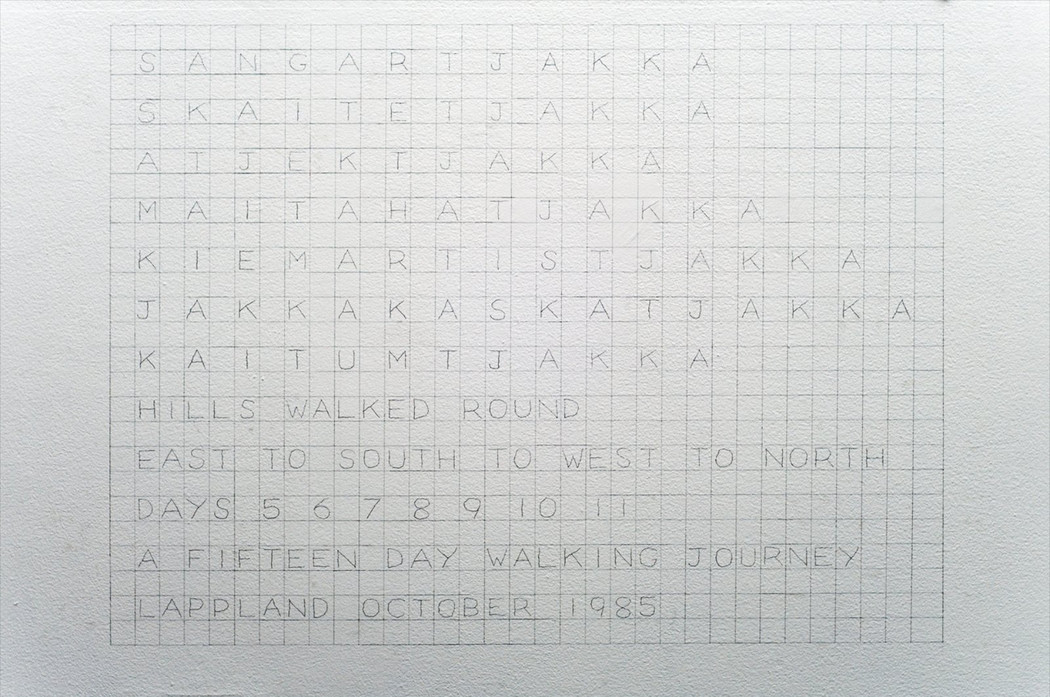 SANGARTJAKKA
SKAITETJAKKA
ATJEKTJAKKA
MAITAHATJAKKA
KIEMARTISTJAKKA
JAKKAKASKATJAKKA
KAITUMTJAKKA
HILLS WALKED ROUND
EAST TO SOUTH TO WEST TO NORTH
DAYS 5 6 7 8 9 10 11
A FIFTEEN DAY WALKING JOURNEY
LAPPLAND OCTOBER 1985